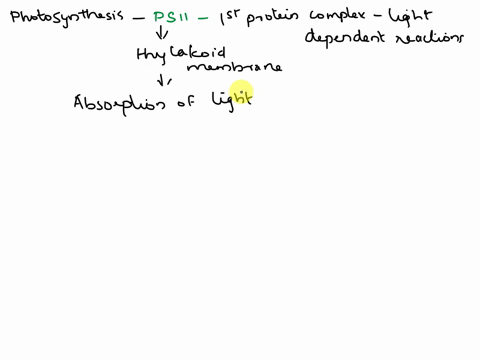 Photosynthesis - PSII - 1st protein complex - light
dependent reactions
Thylakoid
membrane
Absorption of light